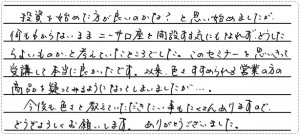 投資を始めた方が良いのかな？と思い始めましたが
何もわからないままニーサ口座を開設する気にもなれず、どうした
らよいものかと考えていたところでした。このセミナーを思いきって
受講して本当に良かったです。以来、色々すすめられる営業の方の
商品を疑ってみるようになってしまいましたが…。
今後も色々と教えていただきたい事もたくさんありますので
どうぞよろしくお願いします。ありがとうございました。